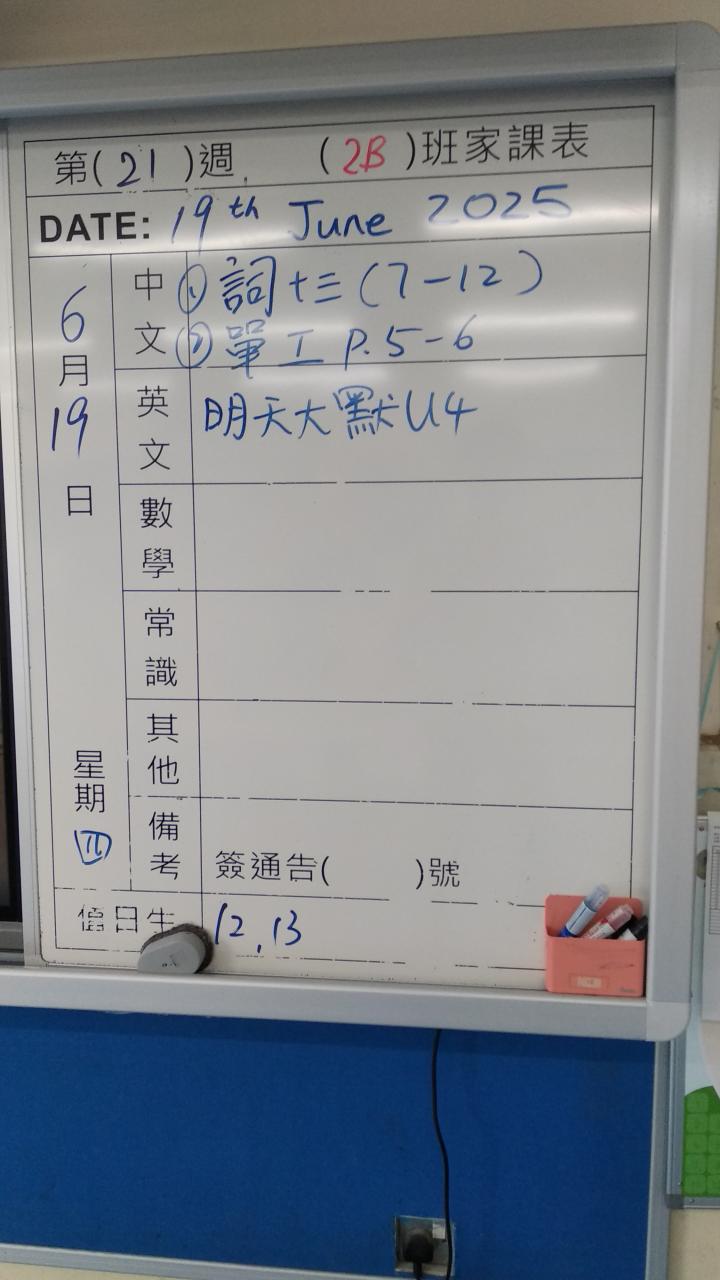 第(21)週 (2B)班家課表
DATE: 19th June 2025
6月19日
星期四
中文 ①詞十三(7-12)
②單工 P.5-6
英文 明天大默U4
數學
常識
其他
備考 簽通告( )號
值日生 12,13